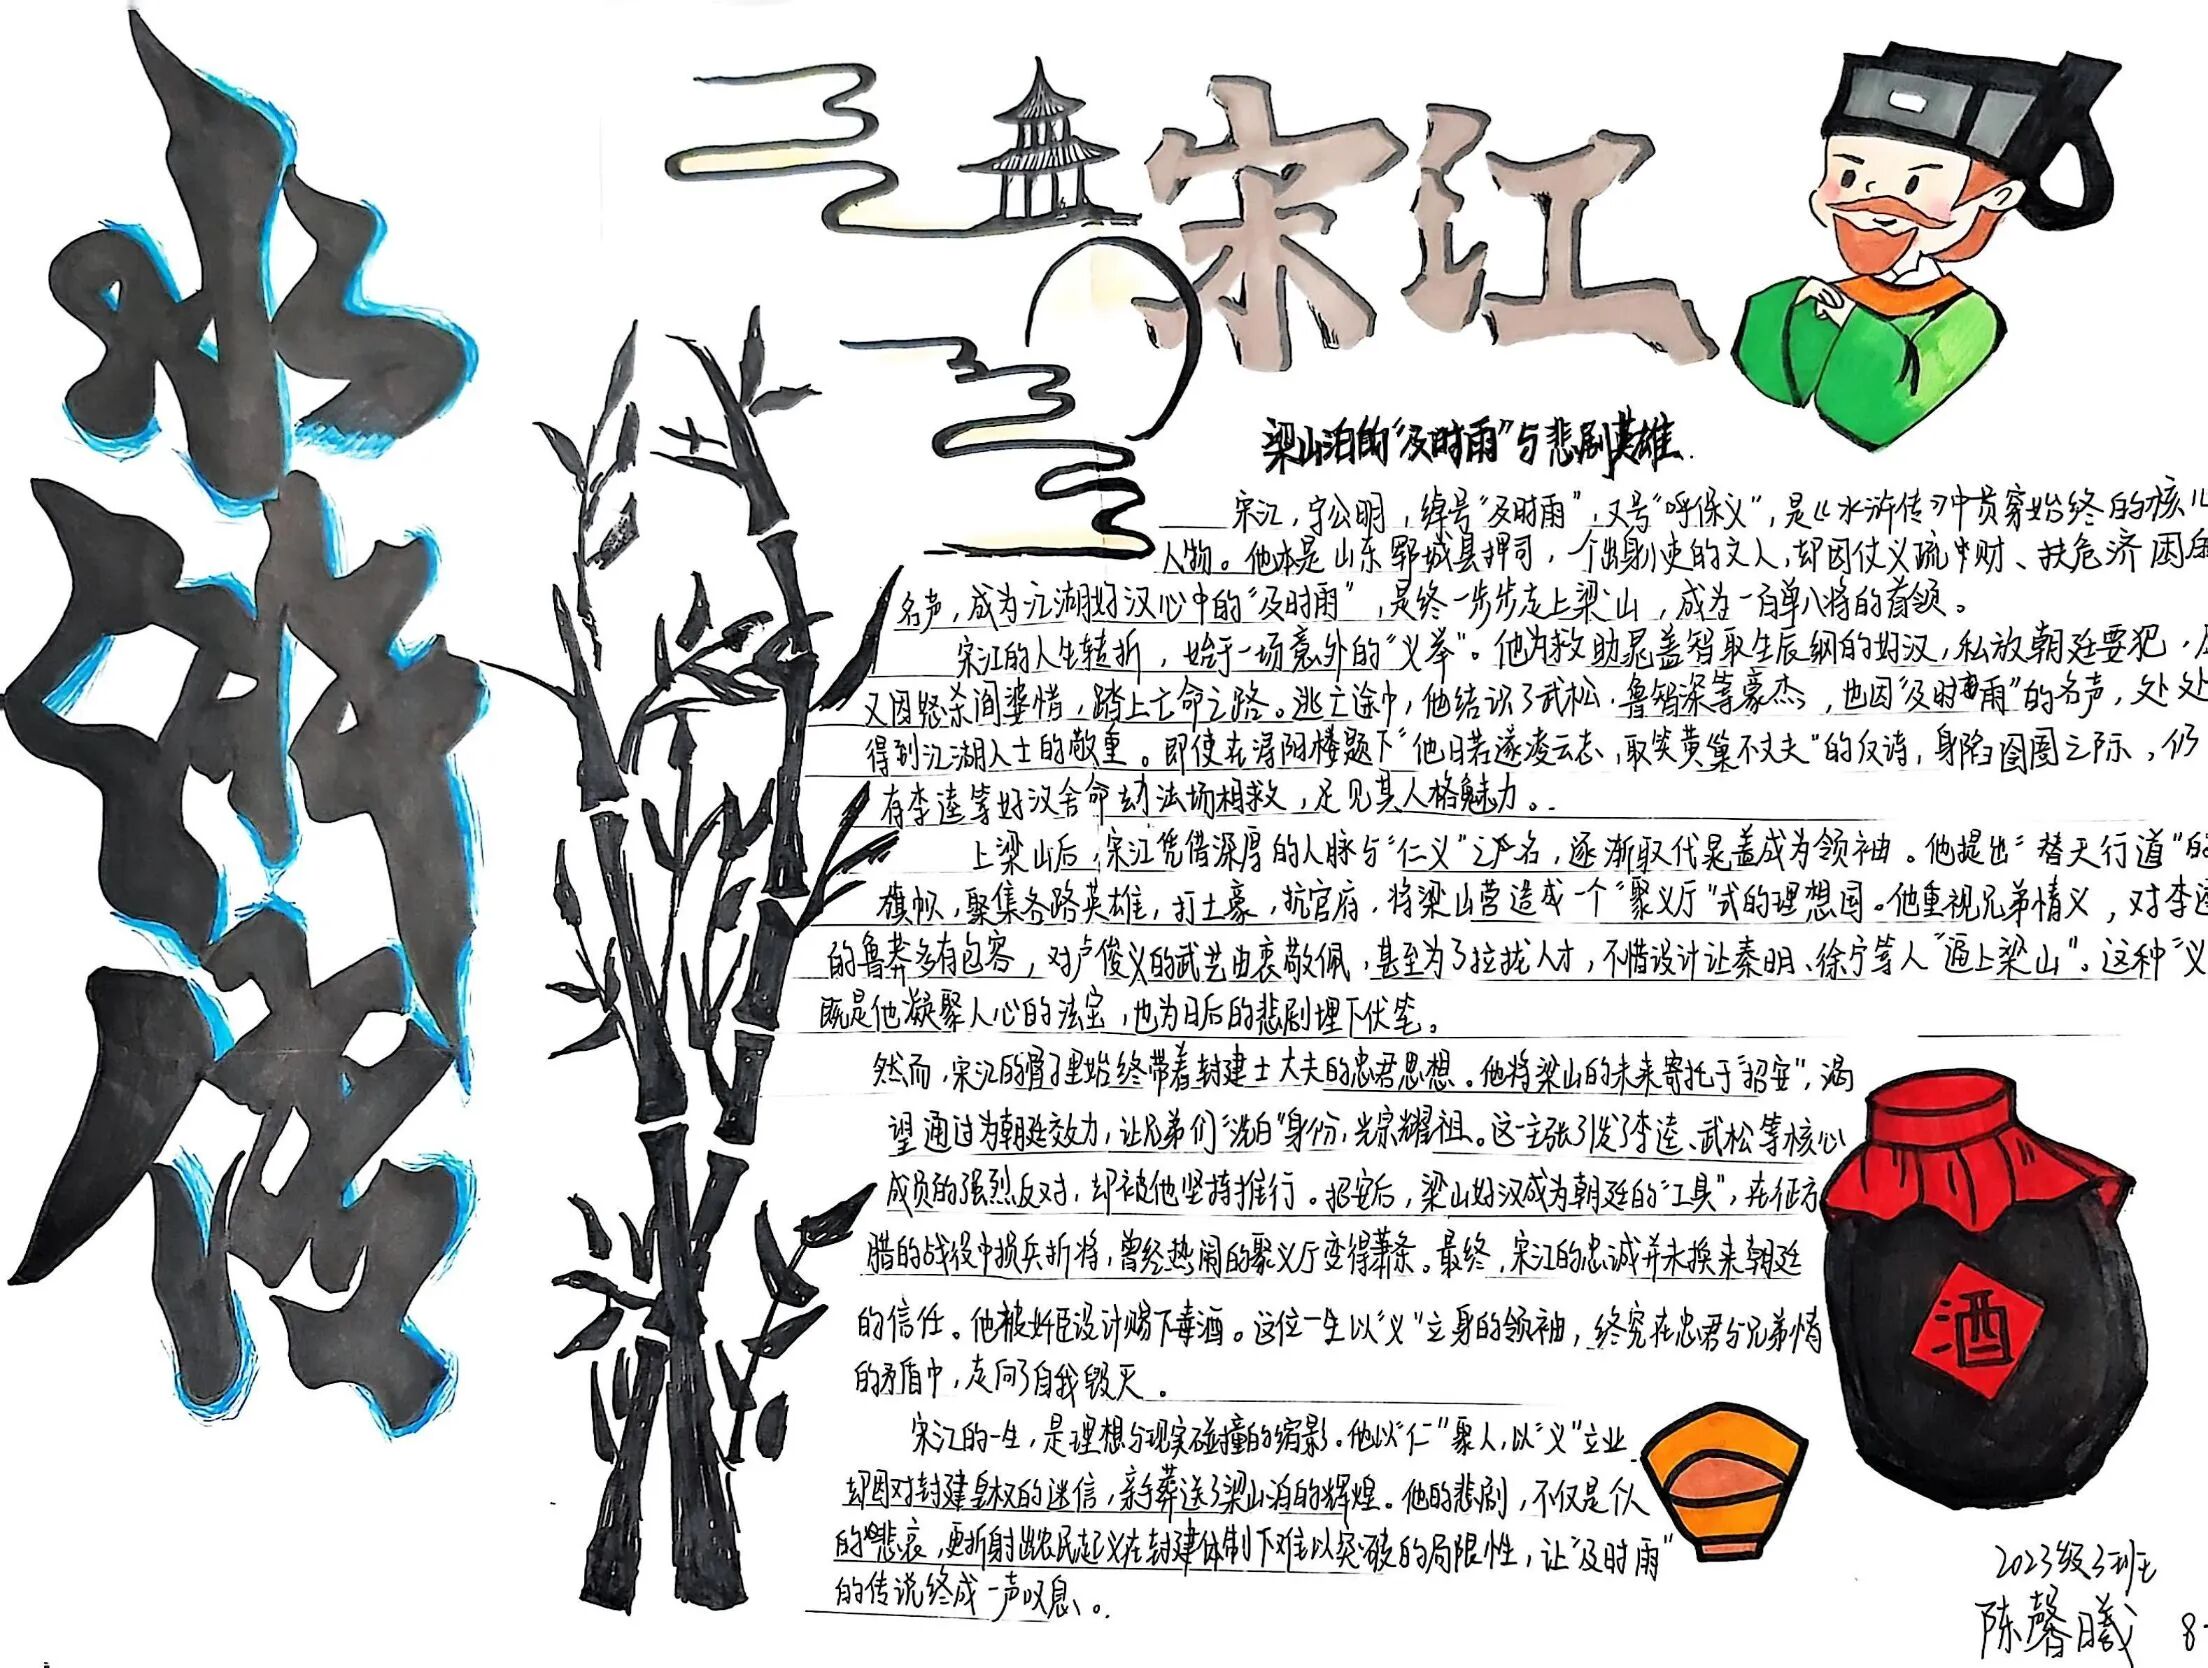 水浒传
宋江
梁山泊的“及时雨”与悲剧英雄.
宋江,字公明,绰号“及时雨”,又号“呼保义”,是《水浒传》中贯穿始终的核心
人物。他本是山东郓城县押司,一个出身小吏的文人,却因仗义疏财、扶危济困的
名声,成为江湖好汉心中的“及时雨”,最终一步步走上梁山,成为一百单八将的首领。
宋江的人生转折,始于一场意外的“义举”。他为救助晁盖智取生辰纲的好汉,私放朝廷要犯,
又因怒杀阎婆惜,踏上亡命之路。逃亡途中,他结识了武松,鲁智深等豪杰,也因“及时雨”的名声,处处
得到江湖人士的敬重。即使在浔阳楼题下“他日若遂凌云志,取笑黄巢不丈夫”的反诗,身陷囹圄之际,仍
有李逵等好汉舍命劫法场相救,足见其人格魅力。
上梁山后,宋江凭借深厚的人脉与“仁义”之名,逐渐取代晁盖成为领袖。他提出“替天行道”的
旗帜,聚集各路英雄,打土豪,抗官府,将梁山营造成一个“聚义厅”式的理想国。他重视兄弟情义,对李逵
的鲁莽多有包容,对卢俊义的武艺由衷敬佩,甚至为了拉拢人才,不惜设计让秦明、徐宁等人“逼上梁山”。这种“义
既是他凝聚人心的法宝,也为日后的悲剧埋下伏笔。
然而,宋江的骨子里始终带着封建士大夫的忠君思想。他将梁山的未来寄托于“招安”,渴
望通过为朝廷效力,让兄弟们“洗白”身份,光宗耀祖。这一主张引发了李逵、武松等核心
成员的强烈反对,却被他坚持推行。招安后,梁山好汉成为朝廷的“工具”,在征方
腊的战役中损兵折将,曾经热闹的聚义厅变得萧条。最终,宋江的忠诚并未换来朝廷
的信任。他被奸臣设计赐下毒酒。这位一生以“义”立身的领袖,终究在忠君与兄弟情
的矛盾中,走向了自我毁灭。
宋江的一生,是理想与现实碰撞的缩影。他以“仁”聚人,以“义”立业
却因对封建皇权的迷信,亲手葬送了梁山泊的辉煌。他的悲剧,不仅是个人
的悲哀,更折射出农民起义在封建体制下难以突破的局限性,让“及时雨”
的传说终成一声叹息。
酒
2023级3班
陈馨曦
8-